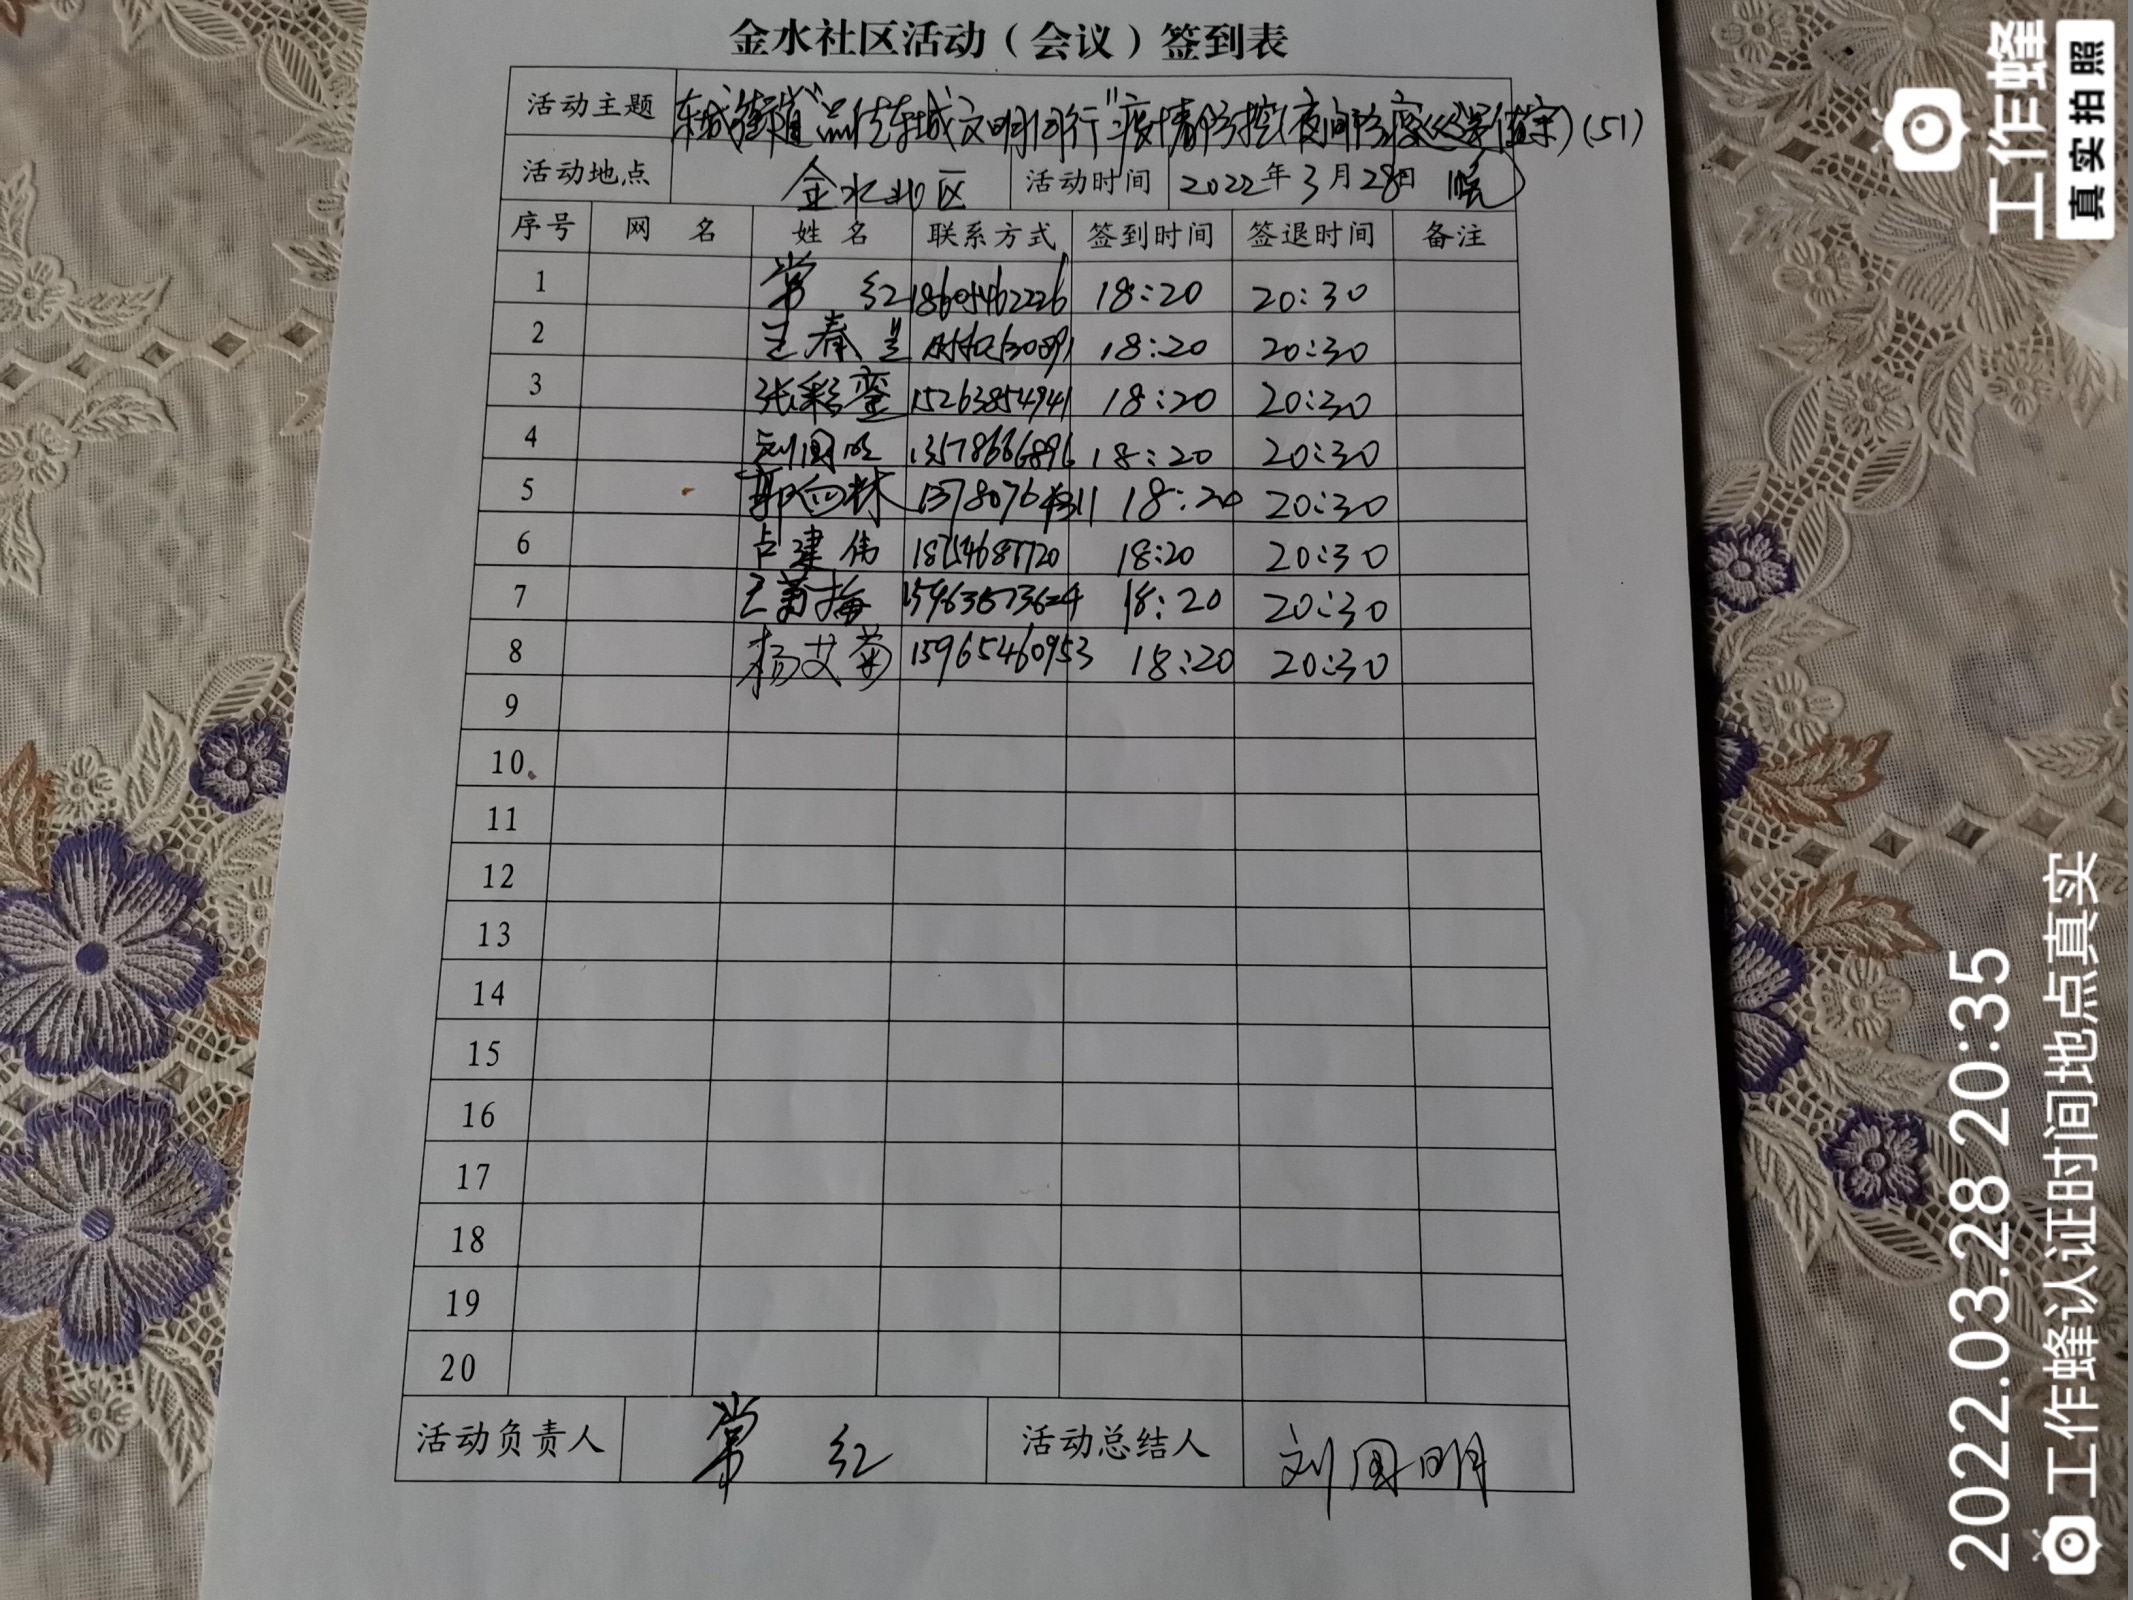 金水社区活动（会议）签到表
活动主题 东城街道"品佳东城文明同行"疫情防控(夜间防疫巡逻值守)(51)
活动地点 金水社区 活动时间 2022年3月28日 晚
序号 网名 姓名 联系方式 签到时间 签退时间 备注
1 常红 18605462226 18:20 20:30
2 王春兰 18:20 20:30
3 张彩銮 15263854941 18:20 20:30
4 刘国明 13578666896 18:20 20:30
5 郭向林 18:20 20:30
6 占建伟 18:20 20:30
7 18:20 20:30
8 杨艾菊 15965460953 18:20 20:30
9
10
11
12
13
14
15
16
17
18
19
20
活动负责人 常红 活动总结人 刘国明
工作蜂
真实拍照
2022.03.28 20:35
工作蜂认证时间地点真实